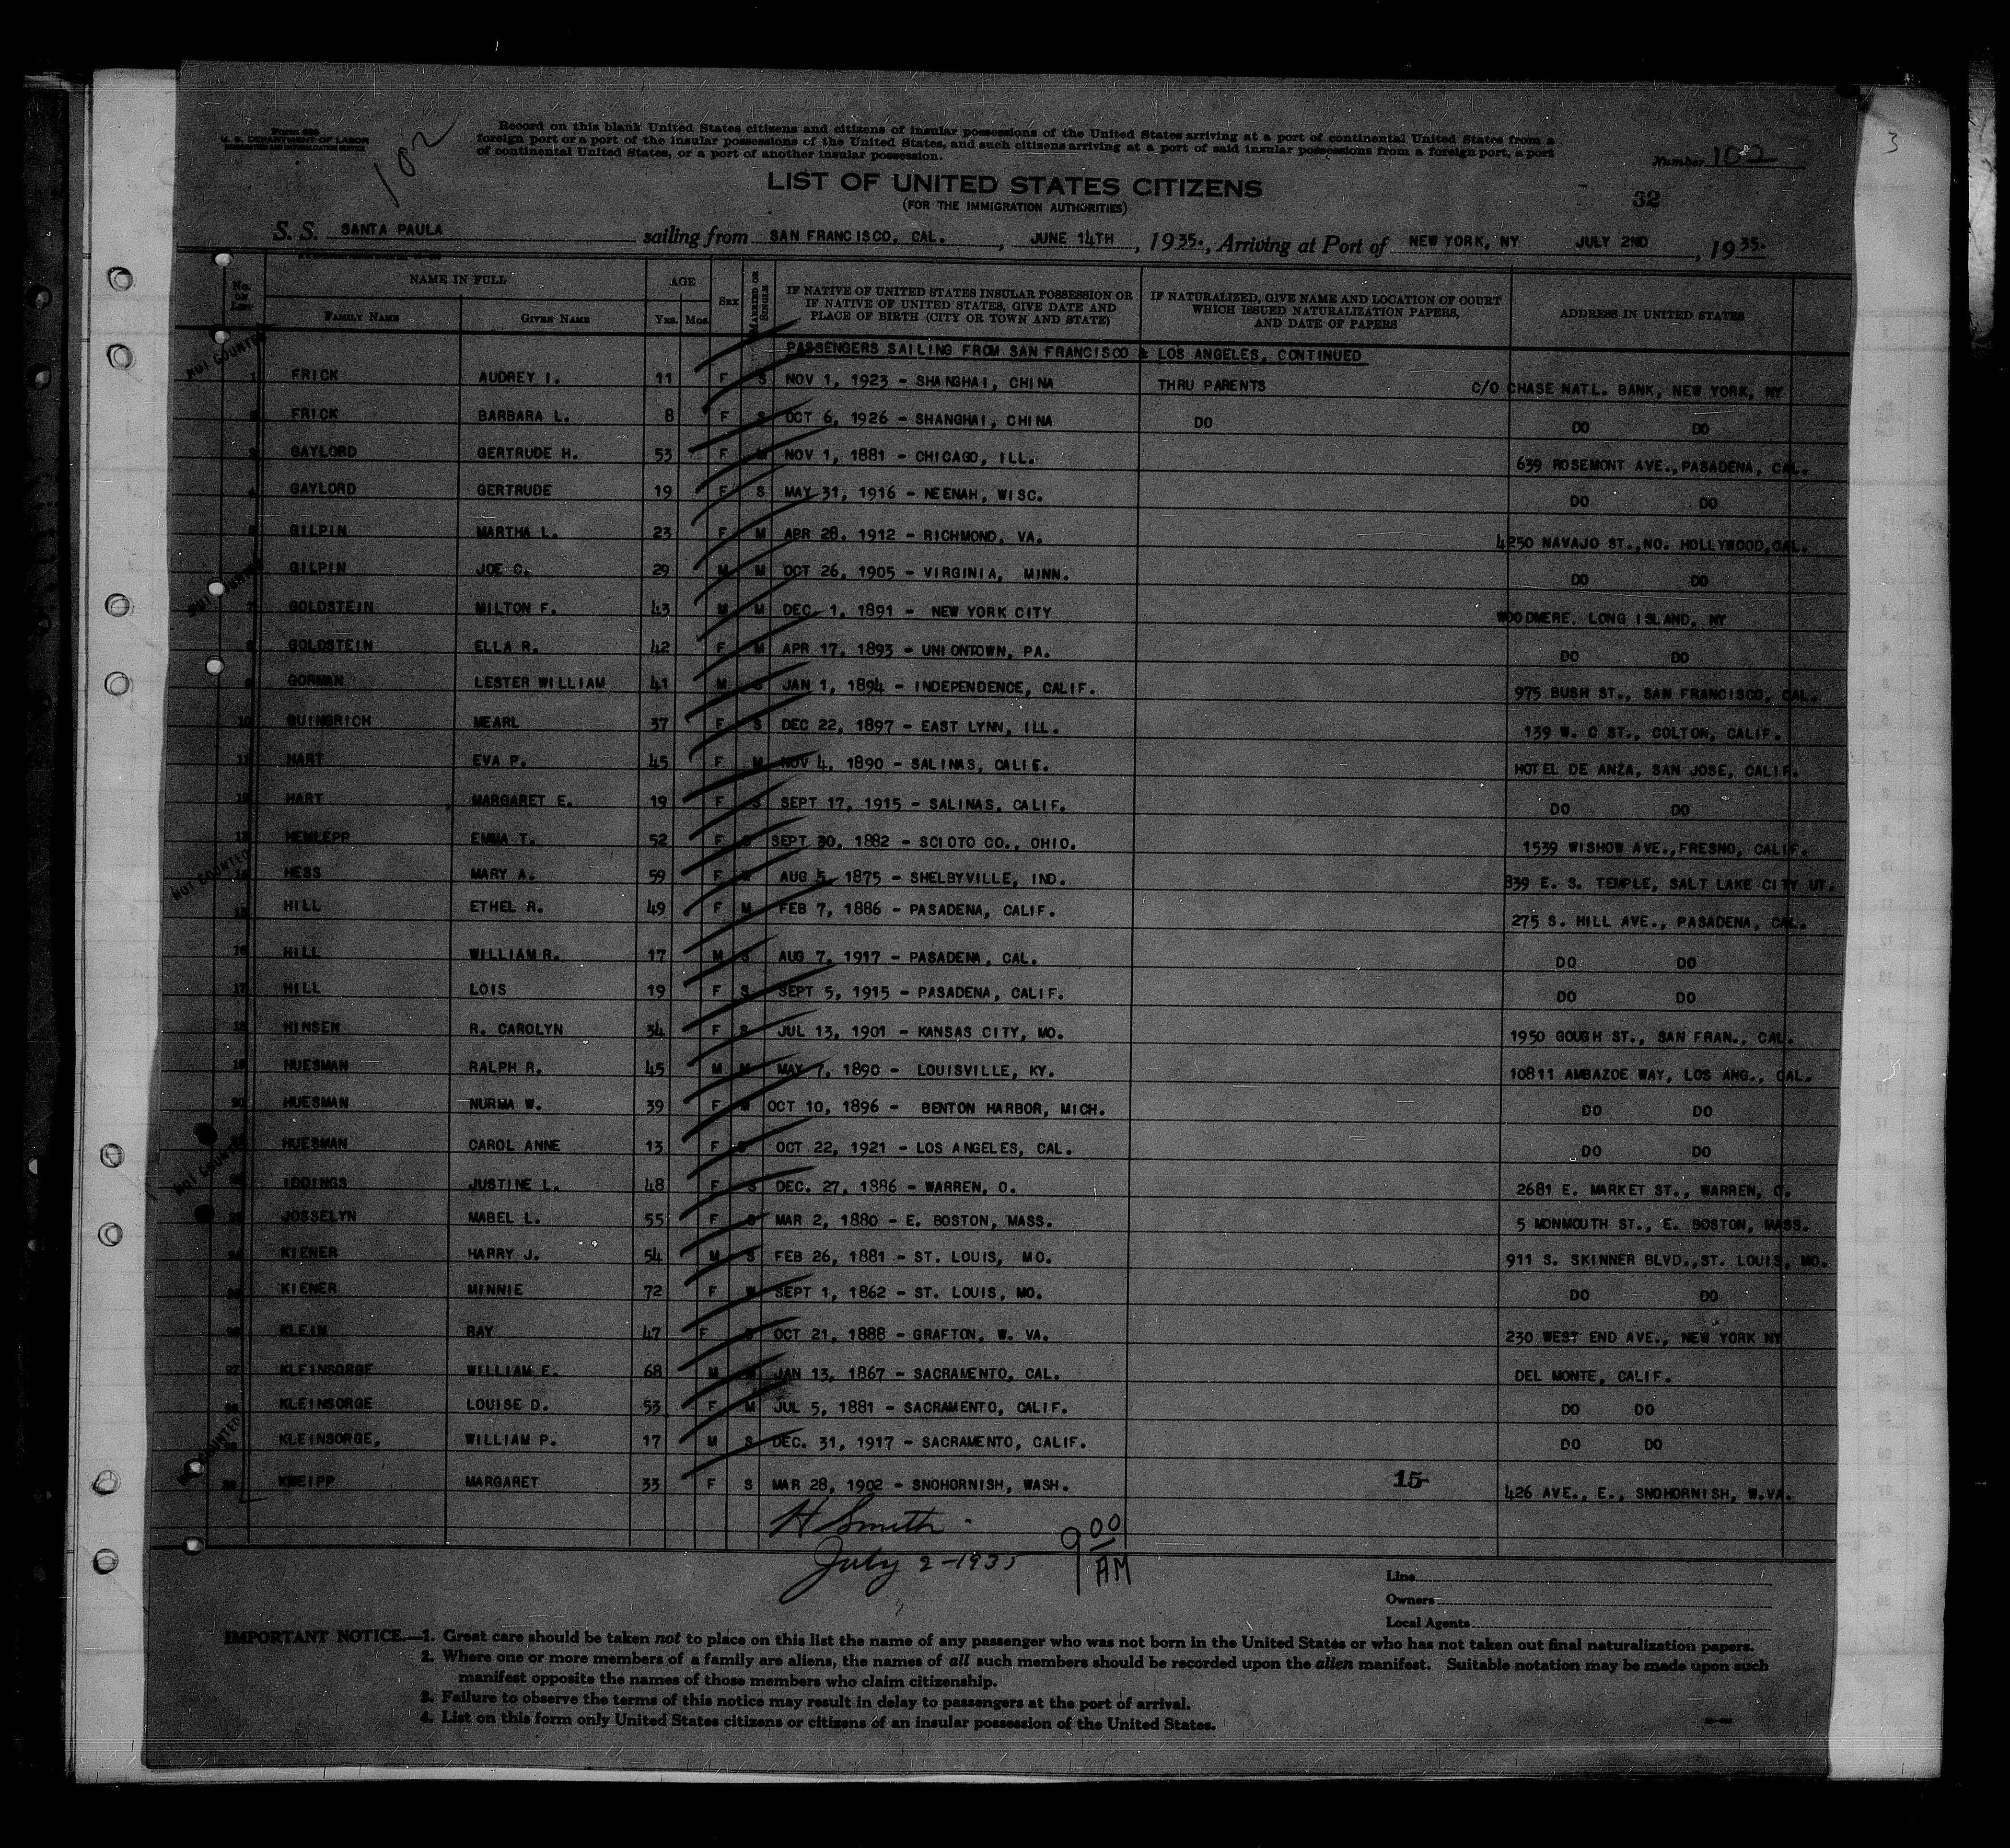 Form 630
U. S. DEPARTMENT OF LABOR
IMMIGRATION AND NATURALIZATION SERVICE
102
Record on this blank United States citizens and citizens of insular possessions of the United States arriving at a port of continental United States from a
foreign port or a port of the insular possessions of the United States, and such citizens arriving at a port of said insular possessions from a foreign port, a port
of continental United States, or a port of another insular possession.
Number 102
3
LIST OF UNITED STATES CITIZENS
(FOR THE IMMIGRATION AUTHORITIES)
32
S. S. SANTA PAULA sailing from SAN FRANCISCO, CAL., JUNE 14TH, 1935., Arriving at Port of NEW YORK, NY JULY 2ND, 1935.
No. on List NAME IN FULL FAMILY NAME GIVEN NAME AGE Yrs. Mos. SEX MARRIED OR SINGLE IF NATIVE OF UNITED STATES INSULAR POSSESSION OR IF NATIVE OF UNITED STATES, GIVE DATE AND PLACE OF BIRTH (CITY OR TOWN AND STATE) IF NATURALIZED, GIVE NAME AND LOCATION OF COURT WHICH ISSUED NATURALIZATION PAPERS, AND DATE OF PAPERS ADDRESS IN UNITED STATES
PASSENGERS SAILING FROM SAN FRANCISCO & LOS ANGELES, CONTINUED
NOT COUNTED
1 FRICK AUDREY I. 11 F S NOV 1, 1923 - SHANGHAI, CHINA THRU PARENTS C/O CHASE NATL. BANK, NEW YORK, NY
2 FRICK BARBARA L. 8 F S OCT 6, 1926 - SHANGHAI, CHINA DO DO DO
3 GAYLORD GERTRUDE H. 53 F M NOV 1, 1881 - CHICAGO, ILL. 639 ROSEMONT AVE., PASADENA, CAL.
4 GAYLORD GERTRUDE 19 F S MAY 31, 1916 - NEENAH, WISC. DO DO
5 GILPIN MARTHA L. 23 F M APR 28, 1912 - RICHMOND, VA. 4250 NAVAJO ST., NO. HOLLYWOOD, CAL.
6 GILPIN JOE C. 29 M M OCT 26, 1905 - VIRGINIA, MINN. DO DO
7 GOLDSTEIN MILTON F. 43 M M DEC 1, 1891 - NEW YORK CITY WOODMERE, LONG ISLAND, NY
8 GOLDSTEIN ELLA R. 42 F M APR 17, 1893 - UNIONTOWN, PA. DO DO
9 GORMAN LESTER WILLIAM 41 M S JAN 1, 1894 - INDEPENDENCE, CALIF. 975 BUSH ST., SAN FRANCISCO, CAL.
10 GUINGRICH MEARL 37 F S DEC 22, 1897 - EAST LYNN, ILL. 139 W. C ST., COLTON, CALIF.
11 HART EVA P. 45 F M NOV 4, 1890 - SALINAS, CALIF. HOTEL DE ANZA, SAN JOSE, CALIF.
12 HART MARGARET E. 19 F S SEPT 17, 1915 - SALINAS, CALIF. DO DO
13 HEMLEPP EMMA T. 52 F S SEPT 30, 1882 - SCIOTO CO., OHIO. 1539 WISHOW AVE., FRESNO, CALIF.
NOT COUNTED
14 HESS MARY A. 59 F AUG 5, 1875 - SHELBYVILLE, IND. 839 E. S. TEMPLE, SALT LAKE CITY UT.
15 HILL ETHEL R. 49 F M FEB 7, 1886 - PASADENA, CALIF. 275 S. HILL AVE., PASADENA, CAL.
16 HILL WILLIAM R. 17 M S AUG 7, 1917 - PASADENA, CAL. DO DO
17 HILL LOIS 19 F S SEPT 5, 1915 - PASADENA, CALIF. DO DO
18 HINSEN R. CAROLYN 34 F S JUL 13, 1901 - KANSAS CITY, MO. 1950 GOUGH ST., SAN FRAN., CAL.
19 HUESMAN RALPH R. 45 M M MAY 7, 1890 - LOUISVILLE, KY. 10811 AMBAZOE WAY, LOS ANG., CAL.
20 HUESMAN NURMA W. 39 F M OCT 10, 1896 - BENTON HARBOR, MICH. DO DO
21 HUESMAN CAROL ANNE 13 F S OCT 22, 1921 - LOS ANGELES, CAL. DO DO
NOT COUNTED
22 IDDINGS JUSTINE L. 48 F S DEC. 27, 1886 - WARREN, O. 2681 E. MARKET ST., WARREN, O.
23 JOSSELYN MABEL L. 55 F S MAR 2, 1880 - E. BOSTON, MASS. 5 MONMOUTH ST., E. BOSTON, MASS.
24 KIENER HARRY J. 54 M S FEB 26, 1881 - ST. LOUIS, MO. 911 S. SKINNER BLVD., ST. LOUIS, MO.
25 KIENER MINNIE 72 F W SEPT 1, 1862 - ST. LOUIS, MO. DO DO
26 KLEIN RAY 47 F S OCT 21, 1888 - GRAFTON, W. VA. 230 WEST END AVE., NEW YORK NY
27 KLEINSORGE WILLIAM E. 68 M M JAN 13, 1867 - SACRAMENTO, CAL. DEL MONTE, CALIF.
28 KLEINSORGE LOUISE D. 53 F M JUL 5, 1881 - SACRAMENTO, CALIF. DO DO
29 KLEINSORGE, WILLIAM P. 17 M S DEC. 31, 1917 - SACRAMENTO, CALIF. DO DO
NOT COUNTED
30 KNEIPP MARGARET 33 F S MAR 28, 1902 - SNOHORNISH, WASH. 15 426 AVE., E., SNOHORNISH, W.VA.
H Smith
July 2-1935 9 00 AM
Line
Owners
Local Agents
IMPORTANT NOTICE.—1. Great care should be taken not to place on this list the name of any passenger who was not born in the United States or who has not taken out final naturalization papers.
2. Where one or more members of a family are aliens, the names of all such members should be recorded upon the alien manifest. Suitable notation may be made upon such
manifest opposite the names of those members who claim citizenship.
3. Failure to observe the terms of this notice may result in delay to passengers at the port of arrival.
4. List on this form only United States citizens or citizens of an insular possession of the United States.